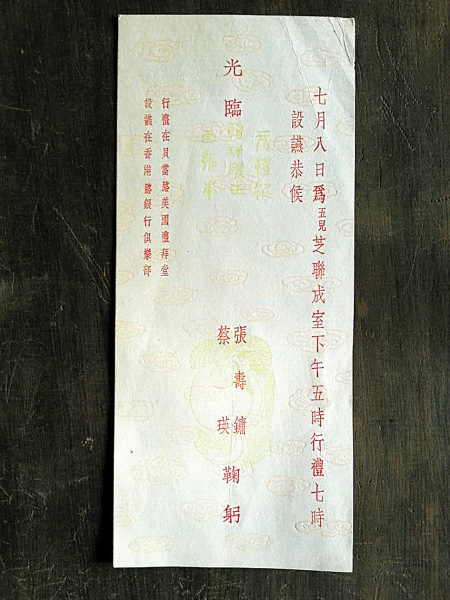 七月八日為五兒芝聯成室下午五時行禮七時
設讌恭候
光臨
張壽鏞
蔡瑛
鞠躬
行禮在貝當路美國禮拜堂
設讌在香港路銀行俱樂部